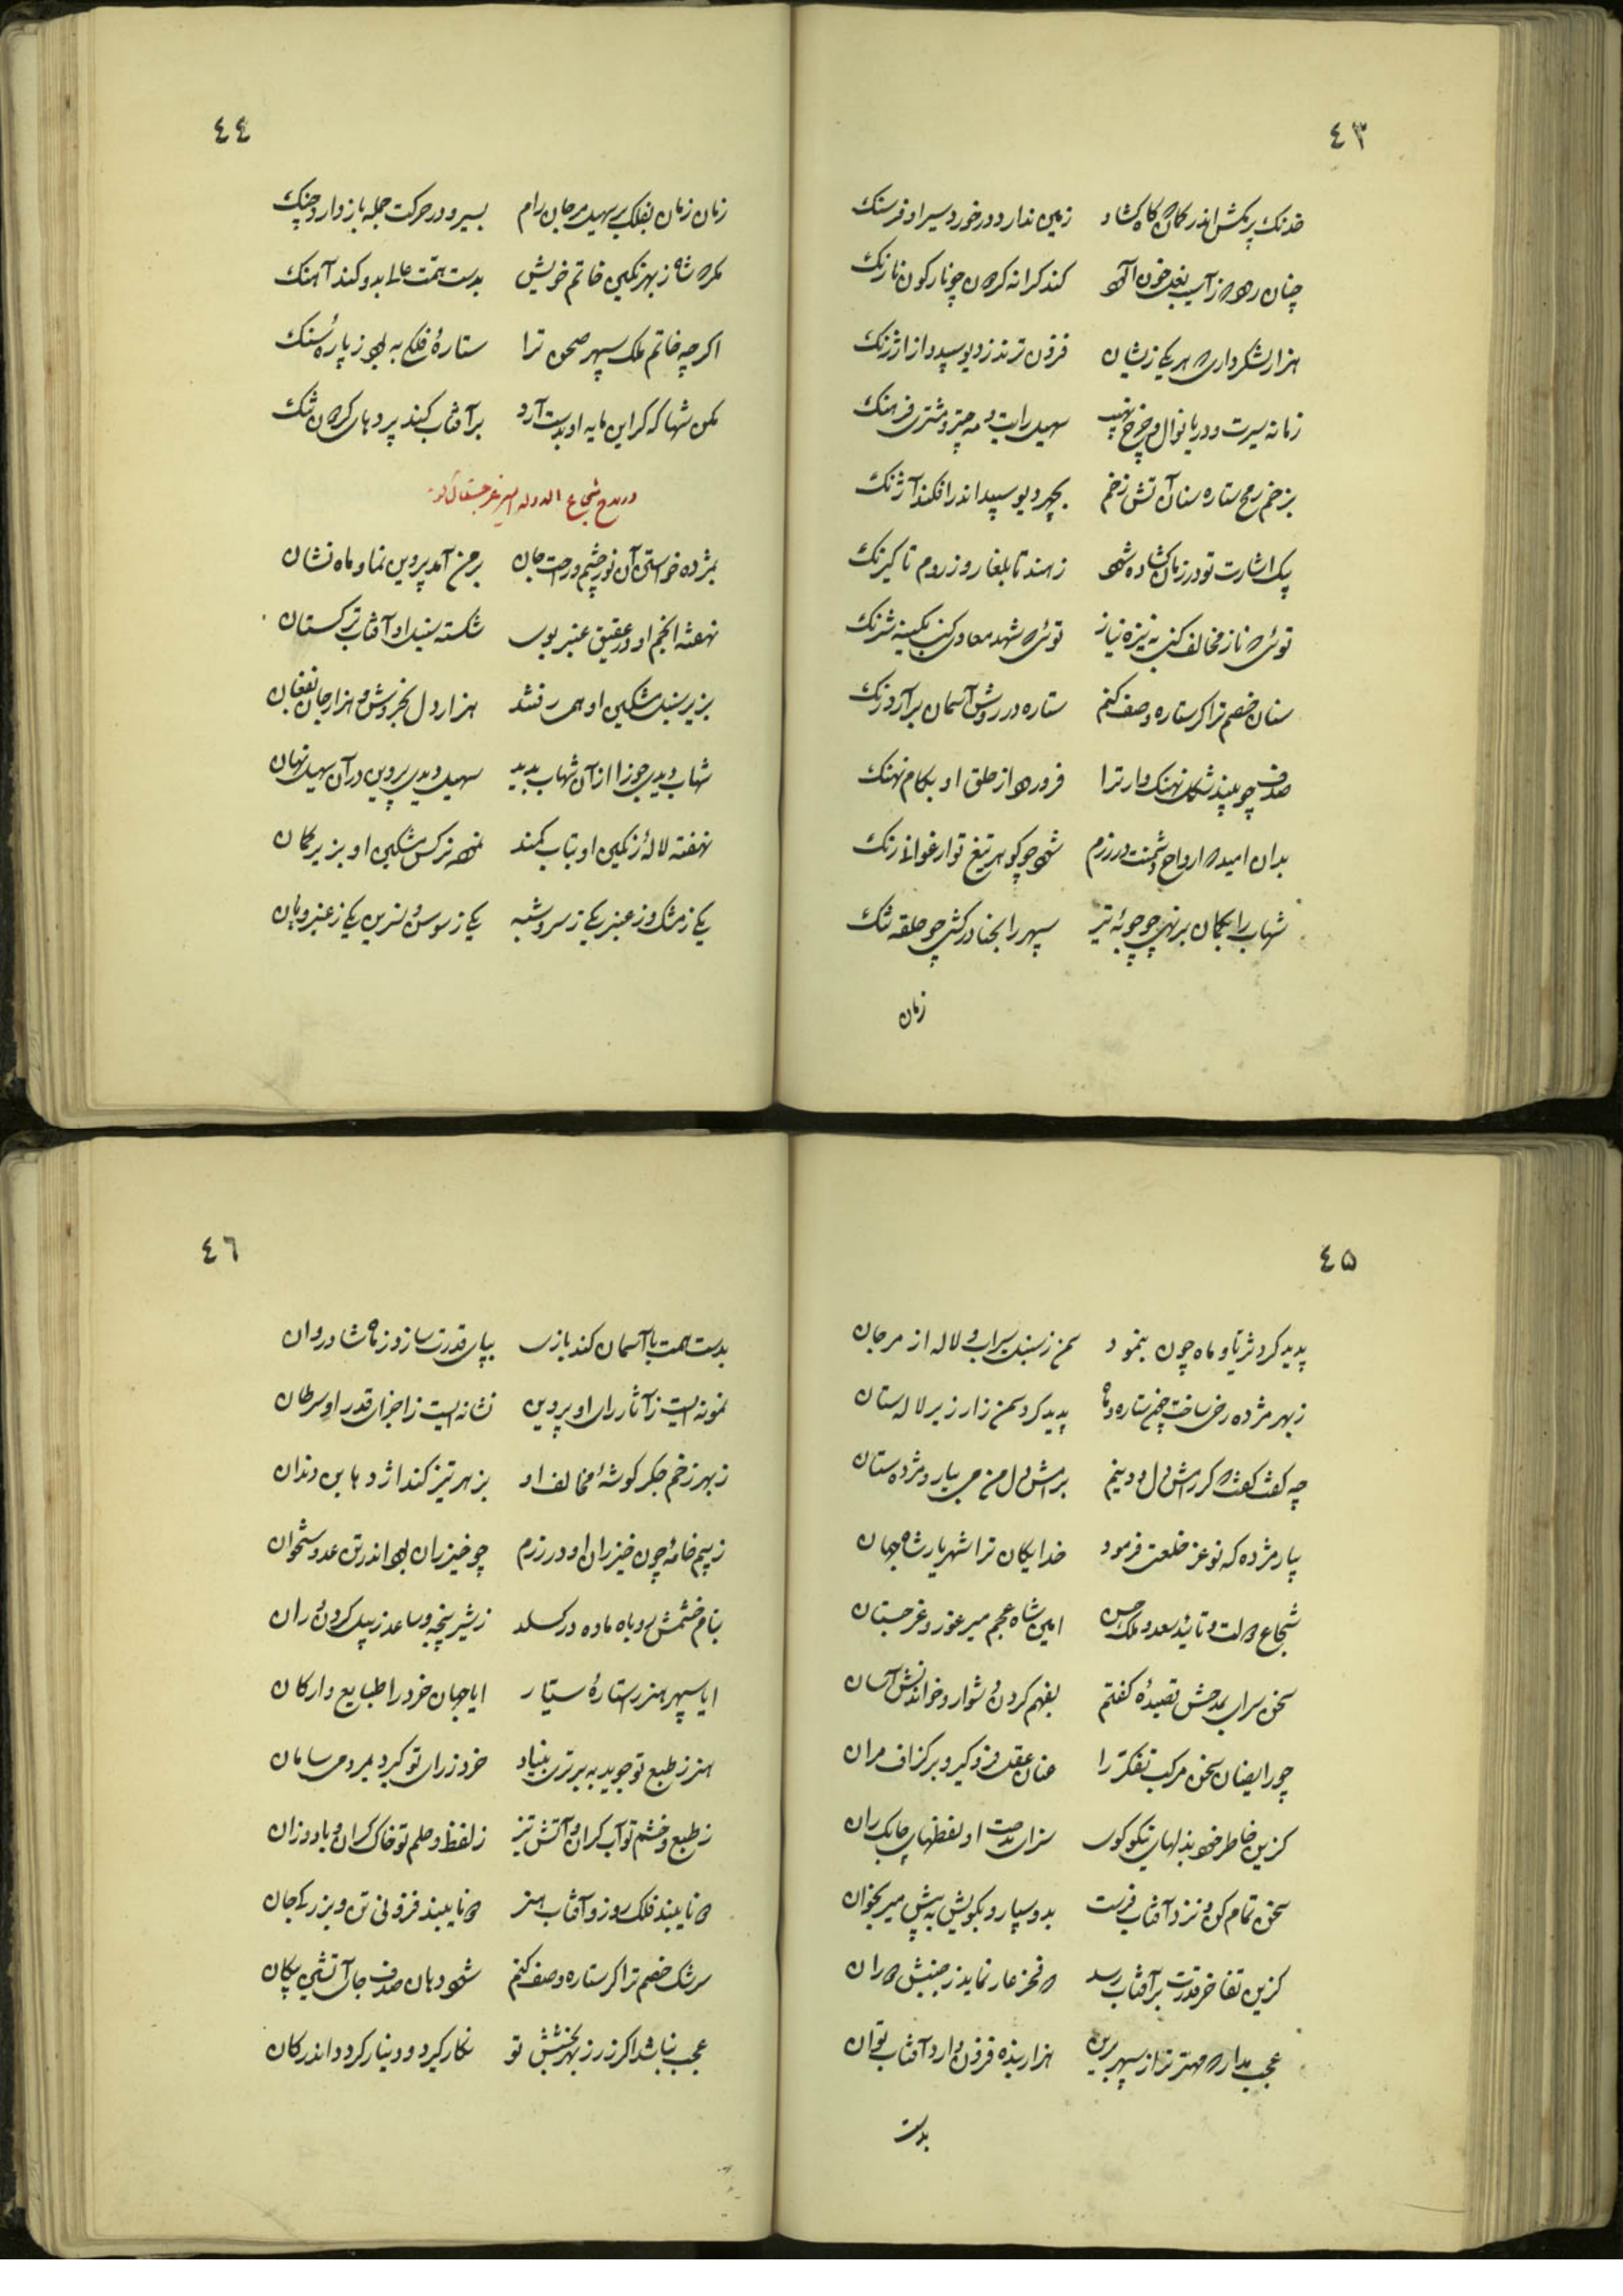 ٤٣
خدنک پرکش اندر کمان کاه کشاد زمین ندارد درخورد سیر او فرسنک
چنان رود ز آسیب نعل خون آلود کند کرانه کردون چو نار کون نارنک
هزار لشکر داری هر یکی زیشان فزون ترند ز دیو سپید و از ارژنک
زمانه سیرت و دریا نوال و چرخ نهیب سهیل رایت و مه چتر و مشتری فرهنک
بزخم رمح ستاره سنان آتش زخم بچهر دیو سپید اندر افکند آژنک
یک اشارت تو در زمان کشاده شود ز هند تا بلغار و ز روم تا کیرنک
توئی که ناز مخالف کنی به نیزه نیاز توئی که شهد معادی کنی بکینه شرنک
سنان خصم ترا کر ستاره وصف کنم ستاره در روش آسمان برآرد زنک
صدف چو بیند شکل نهنک وار ترا فرو رود از حلق او بکام نهنک
بدان امید که ارواح دشمنت در رزم شود چو کوهر تیغ تو ارغوانی رنک
شهاب را بکمان برنهی چو چوبه تیر سپهر را بخنا درکشی چو حلقه تنک
زمان
٤٤
زمان زمان بفلک بر سهیل مرجان رام بسیر و در حرکت جمله باز دارد چنک
مکر که شاه ز بهر نکین خاتم خویش بدست همت عالی بدو کند آهنک
اکرچه خاتم ملک سپهر صحن ترا ستارهٔ فلکی به بود ز پارهٔ سنک
مکن شها که کر این مایه او بدست آرد بر آفتاب کند پردهای کردون تنک
در مدح شجاع الدوله امیر غرجستان کوید
بمژده خواستی آن نور چشم و راحت جان بر من آمد پروین نما و ماه نشان
نهفته انجم او در عقیق عنبر بوی شکسته سنبل او آفتاب ترکستان
بزیر سنبل مشکین او همی رفتند هزار دل بخروش و هزار جان بفغان
شهاب دیدی جوزا از آن شهاب پدید سهیل دیدی پروین در آن سهیل نهان
نهفته لالهٔ رنکین او بتاب کمند نموده نرکس مشکین او بزیر کمان
یکی ز مشک و ز عنبر یکی ز سرو شبه یکی ز سوسن و نسرین یکی ز عنبر و بان
٤٥
پدید کرد ثریا و ماه چون بنمود سمن ز سنبل سیراب و لاله از مرجان
ز بهر مژده رخی ساخت چون ستاره و ماه پدید کرد سمن زار زیر لالستان
چه کفت کفت که کر رامش دل و دینم برامش دل من می بیار و مژده ستان
بیار مژده که نو عز خلعت فرمود خدایکان ترا شهریار شاه جهان
شجاع دولت و تائید سعد و ملک حسن امین شاه عجم میر غور و غرجستان
سخن سرای بمدحش قصیدهٔ کفتم بفهم کردن دشوار و خواندنش آسان
چو رایضان سخن مرکب تفکر را عنان عقل فرو کیر و بر کزاف مران
کزین خاطر خود بذلهای نیکو کوی سزای مدحت او لفظهای چابک ران
سخن تمام کن و نزد آفتاب فرست بدو سپار و بکویش به پیش میر بخوان
کزین تفاخر قدرت بر آفتاب رسد که فخر عار نماید ز جنبش دوران
عجب مدار که مهتر تر از سپهر برین هزار بنده فزون دارد آفتاب توان
بدست
٤٦
بدست همت با آسمان کند بازی بپای قدرت سازد ز ماه شادروان
نمونه ایست ز آثار رای او پروین نشانه ایست ز اجزای قدر او سرطان
ز بهر زخم جکر کوشهٔ مخالف او بزهر تیز کند اژدهای بن دندان
ز بیم خامهٔ چون خیزران او در رزم چو خیزران بود اندر تن عدو ستخوان
بنام خشمش روباه ماده درکسلد ز شیر پنجه و ساعد ز پیل کردن و ران
ایا سپهر هنر را ستارهٔ سیار ایا جهان خرد را طبایع و ارکان
هنر ز طبع تو جوید به برتری بنیاد خرد ز رای تو کیرد بمردمی سامان
ز طبع و خشم تو آب کران و آتش تیز ز لفظ و حلم تو خاک کران و باد وزان
که تا ببیند فلک روز و آفتاب هنر که تا ببیند فزونی تن و بزرکی جان
سرشک خصم ترا کر ستاره وصف کنم شود دهان صدف جای آتشین پیکان
عجب نباشد اکر زر ز بهر بخشش تو نکار کیرد و دینار کردد اندر کان